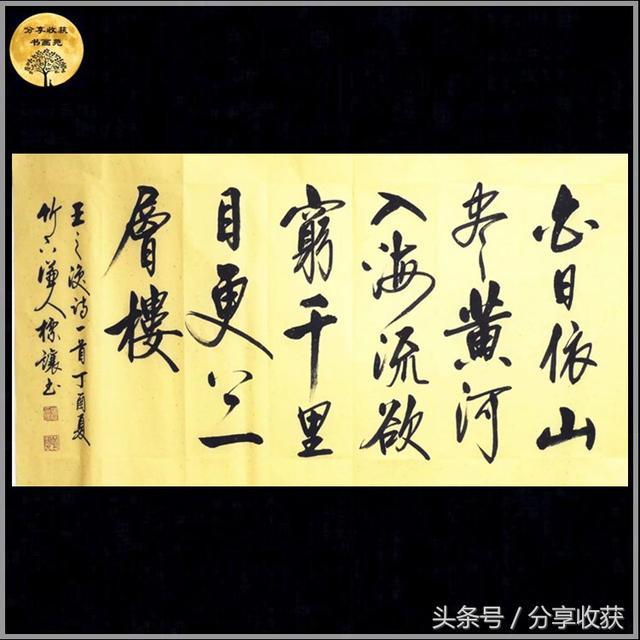 分享收获
书画苑
白日依山
尽黄河
入海流欲
窮千里
目更上一
層樓
王之渙诗一首丁酉夏
竹人书
头条号 / 分享收获